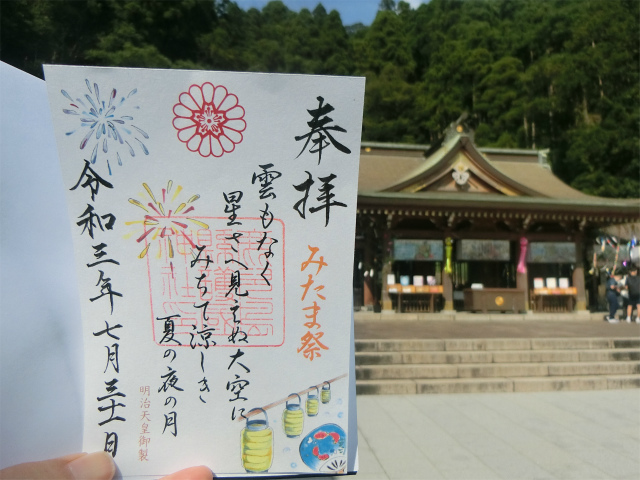 奉拝
みたま祭
雲もなく
星さへ見えぬ大空に
みちて涼しき
夏の夜の月
明治天皇御製
令和三年七月三十一日